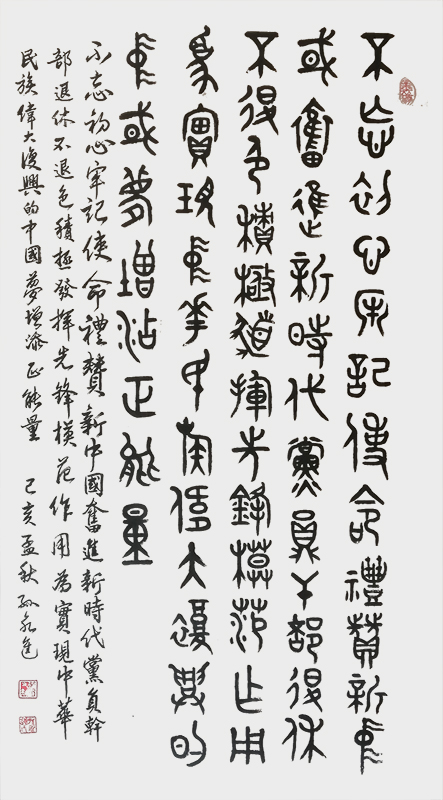 不忘初心牢記使命禮贊新中
國奮進新時代黨員干部退休
不退色積極發揮先鋒模范作用
為實現中華民族偉大復興的
中國夢增添正能量
不忘初心牢記使命禮贊新中國奮進新時代黨員幹
部退休不退色積極發揮先鋒模范作用為實現中華
民族偉大復興的中國夢增添正能量 己亥孟秋